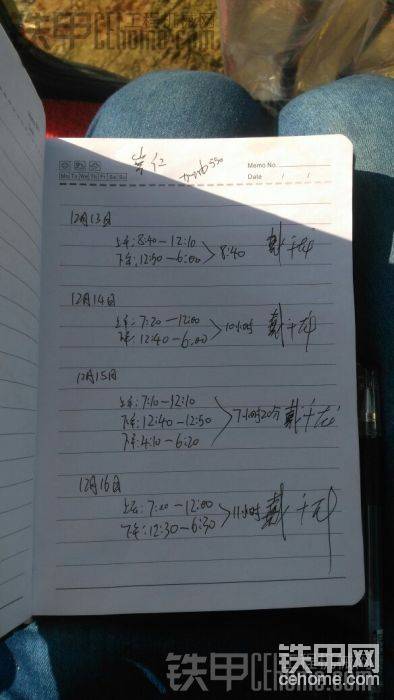 铁甲 工程机械网
CEhome.com
Memo No.
Mo Tu We Th Fr Sa Su
Date / /
12月13日
上午:8:40—12:10
下午:12:50—6:00
8:40
12月14日
上午:7:20—12:00
下午:12:40—6:00
10小时
12月15日
上午:7:10—12:10
下午:12:40—12:50
下午:4:10—6:20
7小时20分
12月16日
上午:7:00—12:00
下午:12:30—6:30
11小时
铁甲网
cehome.com